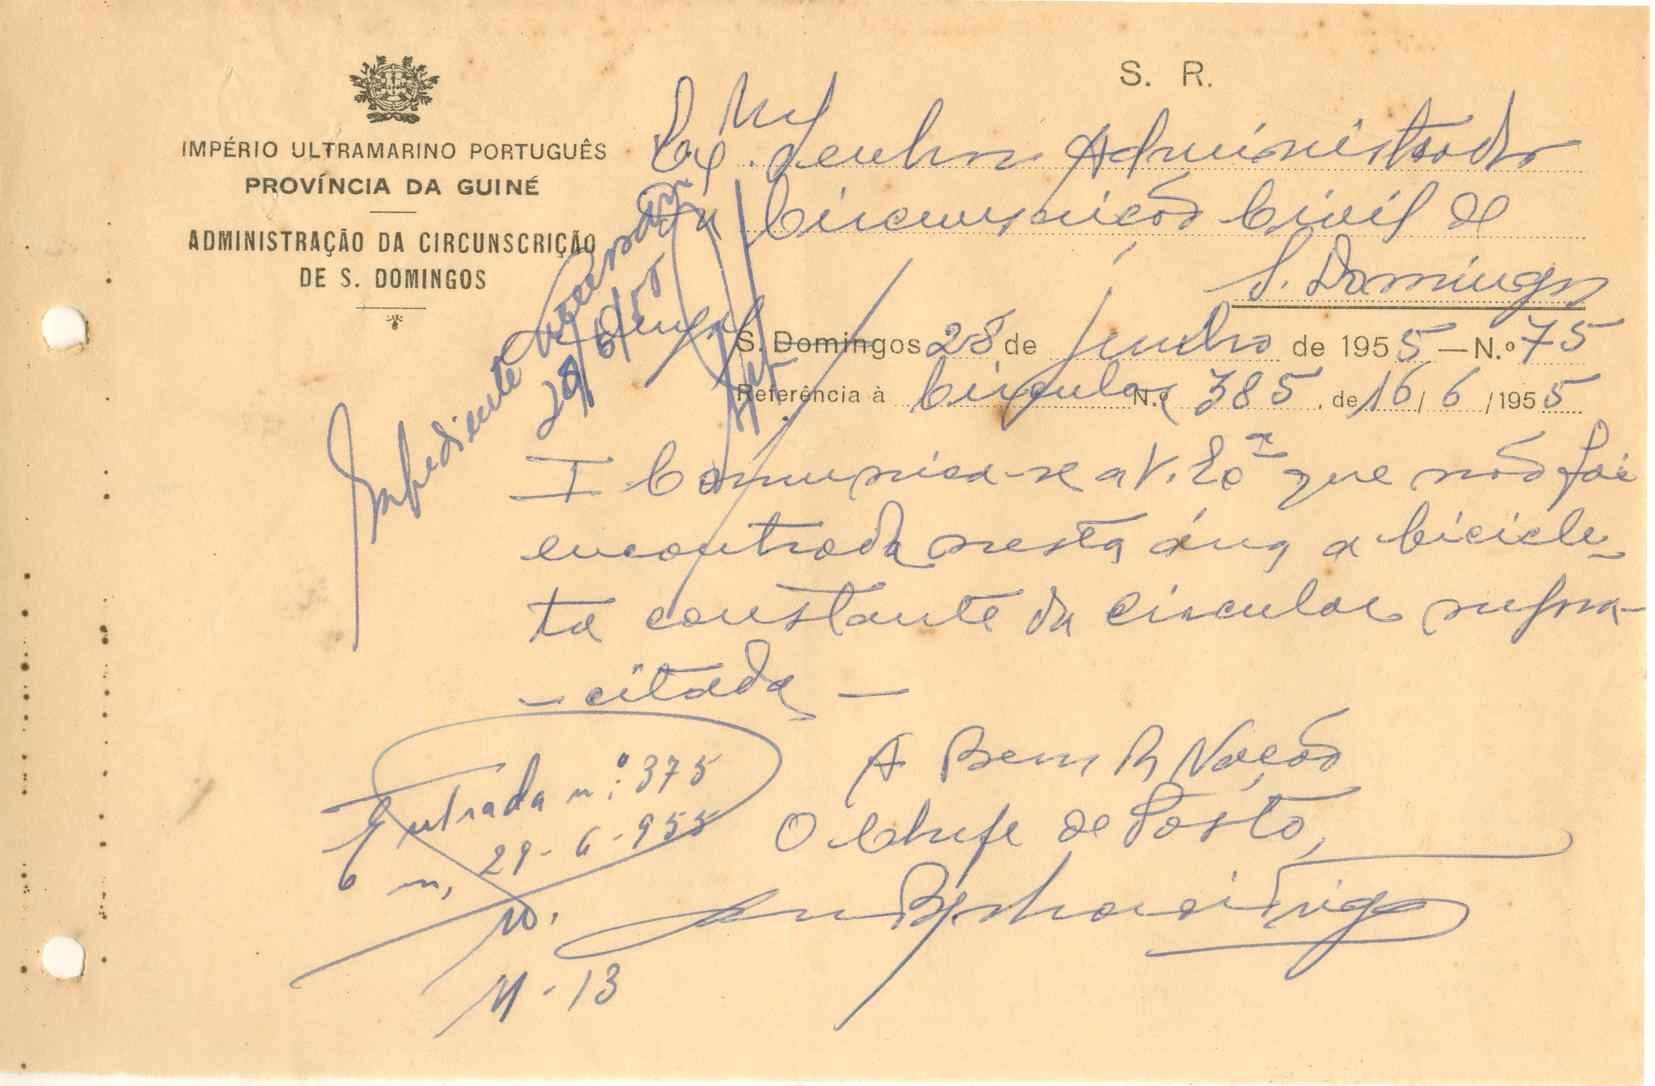 S. R.
IMPÉRIO ULTRAMARINO PORTUGUÊS
PROVÍNCIA DA GUINÉ
ADMINISTRAÇÃO DA CIRCUNSCRIÇÃO
DE S. DOMINGOS
Exmº. Senhor Administrador
da Circunscrição Civil de
S. Domingos
S. Domingos 28 de Junho de 1955 — N.º 75
Referência à Circular N.º 385, de 16/6/1955
I Comunica-se a V. Exª que não foi
encontrada nesta área a bicicle-
ta constante da circular supra-
- citada -
A Bem da Nação
O Chefe de Posto,
Expediente
28/6/55
Entrada n.º 375
29-6-955
M-13